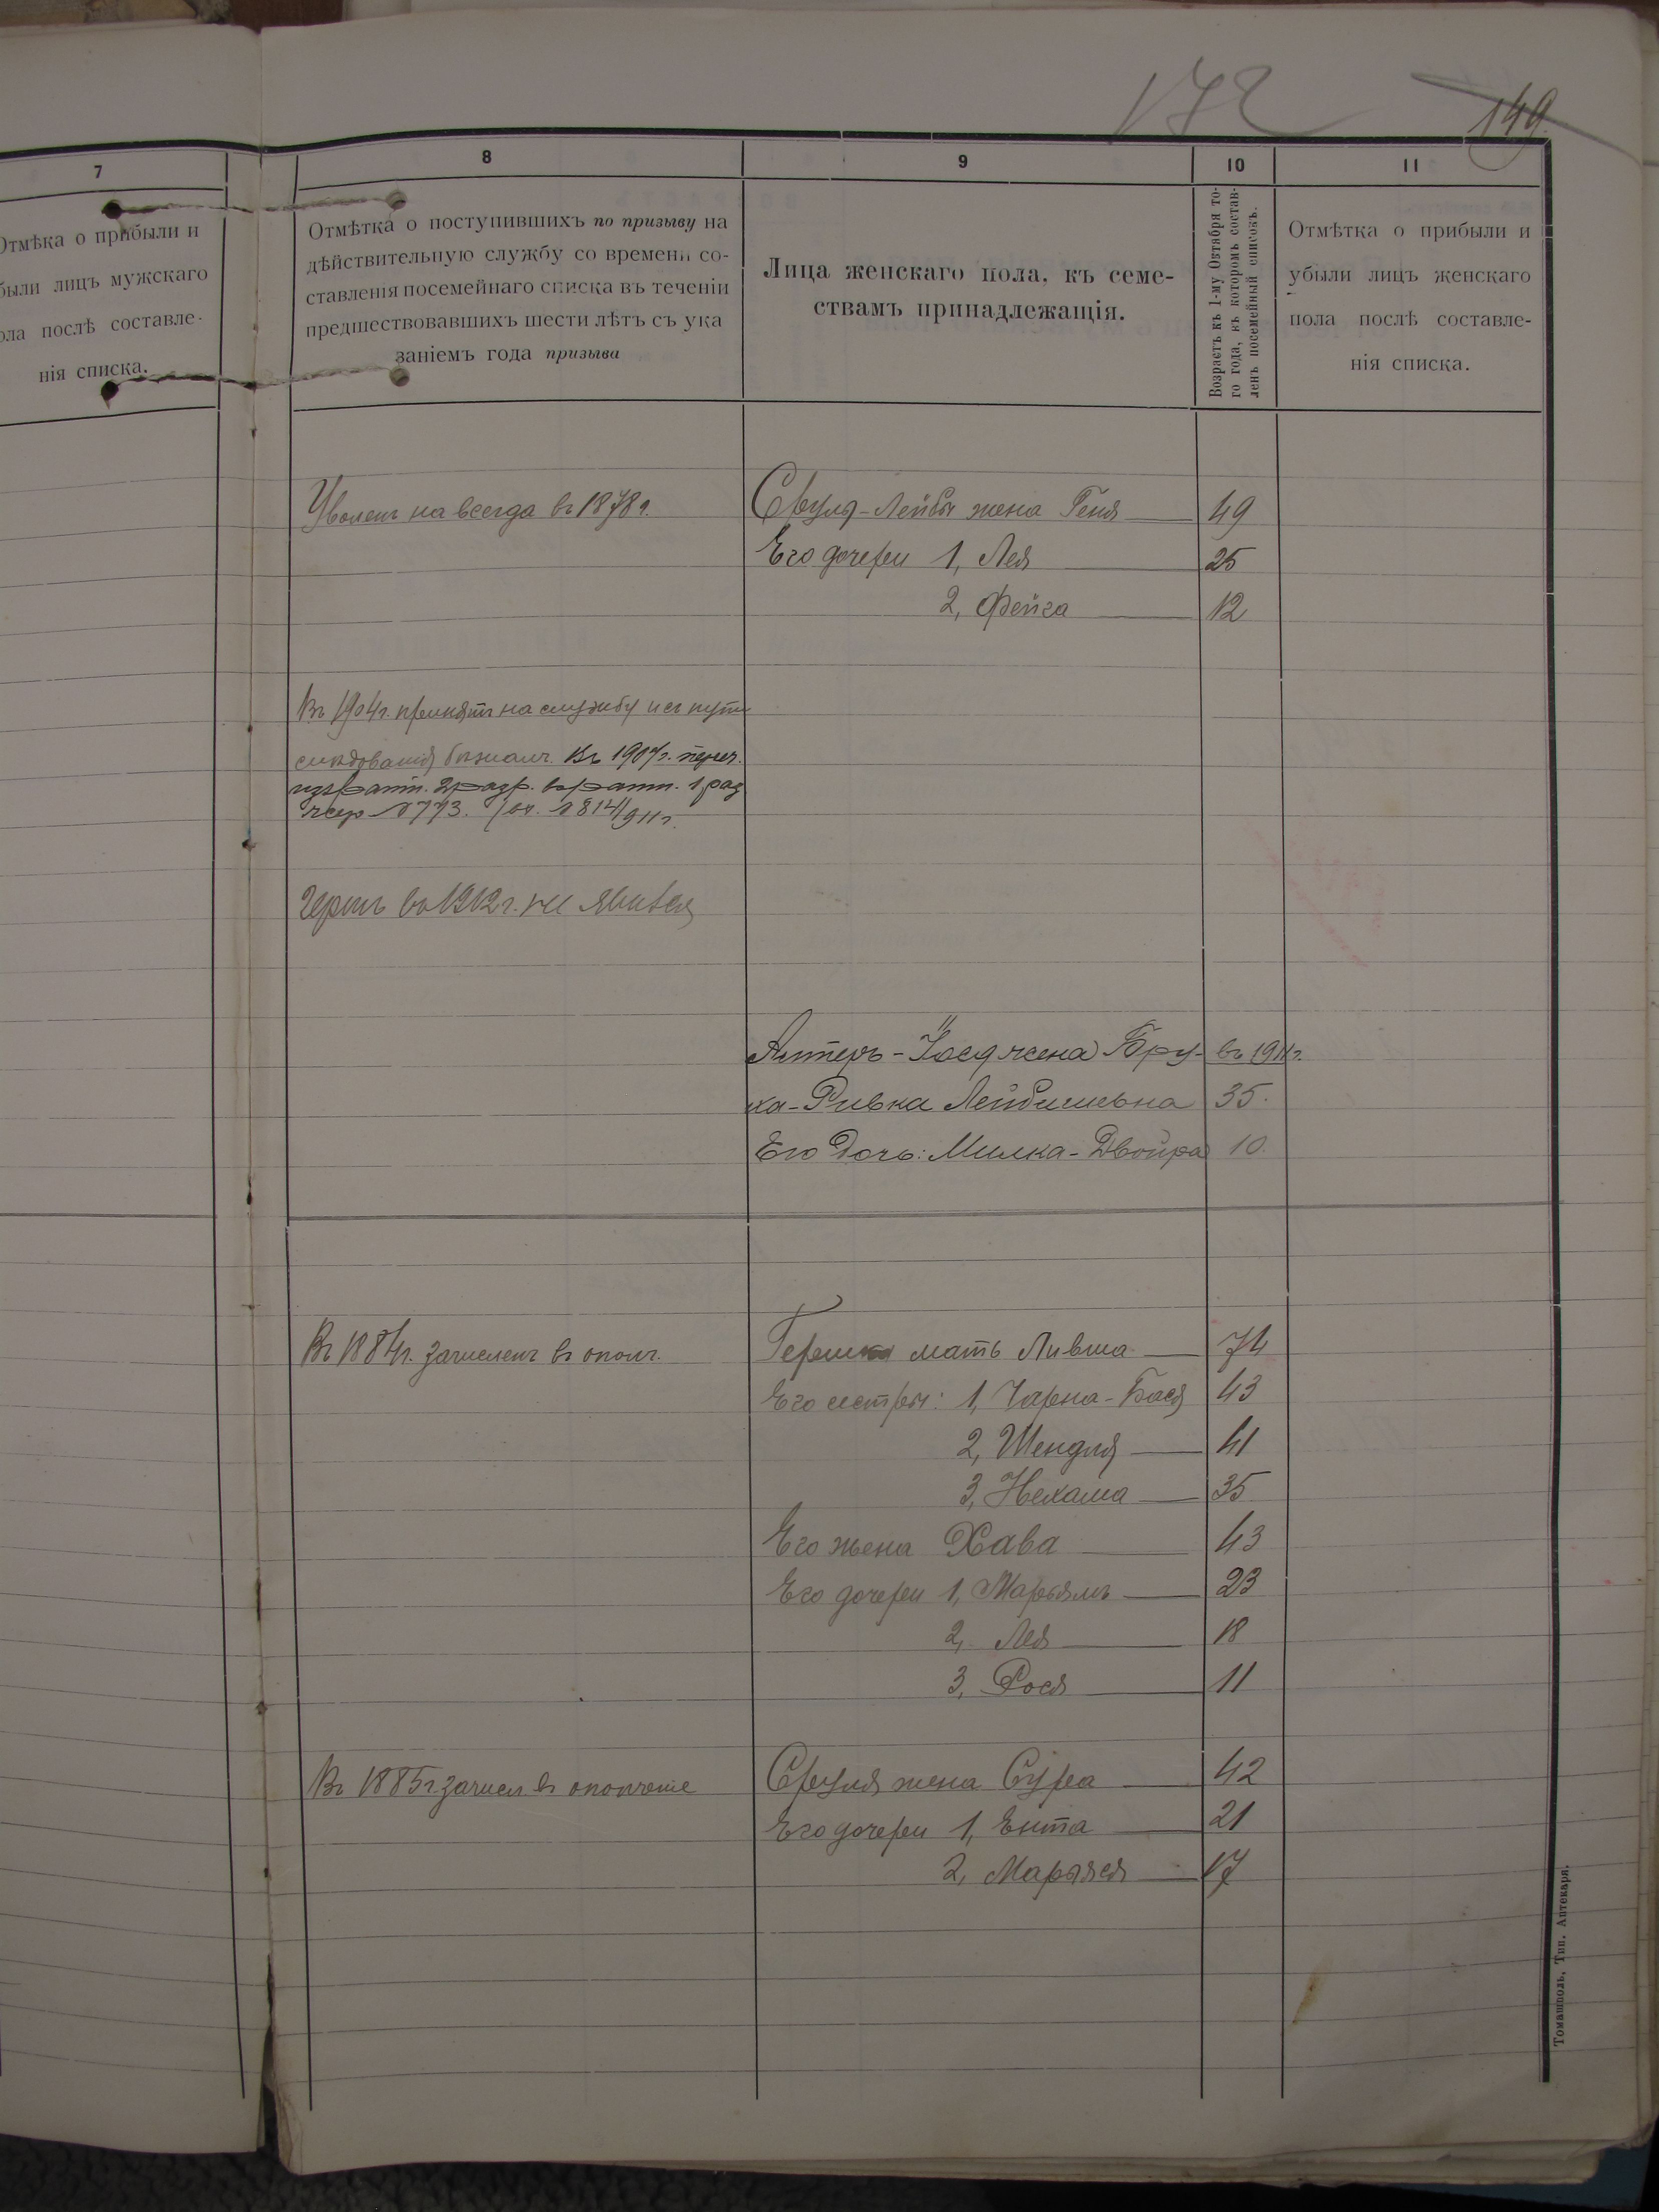 172
149
7
8
9
10
11
Отмѣка о прибыли и
были лицъ мужскаго
ола послѣ составле-
нія списка.
Отмѣтка о поступившихъ по призыву на
дѣйствительную службу со времени со-
ставленія посемейнаго списка въ теченіи
предшествовавшихъ шести лѣтъ съ ука
заніемъ года призыва
Лица женскаго пола, къ семе-
ствамъ принадлежащія.
Возрастъ къ 1-му Октября то-
го года, къ которомъ состав-
ленъ посемейный списокъ.
Отмѣтка о прибыли и
убыли лицъ женскаго
пола послѣ составле-
нія списка.
Уволенъ на всегда въ 1878 г.
Сруля-Лейбы жена Геня 49
Его дочери 1, Лея 25
2, Фейга 12
Въ 1904 г. принятъ на службу и съ пути
слѣдованія бѣжалъ. Въ 1907 г. переч.
из ратн. 2 разр. в ратн. 1 раз
773. 814/911 г.
въ 1912 г. не явился
Алтеръ-Іося жена Бру- въ 1911 г.
ха-Ривка Лейбишевна 35.
Его Дочь: Милка-Двойра 10.
Въ 1884 г. зачисленъ въ ополч.
Гершка мать Лившa 74
Его сестры: 1, Чарна-Бася 43
2, Шендля 41
3, Нехама 35
Его жена Хава 43
Его дочери 1, Марьямъ 23
2, Лея 18
3, Рося 11
Въ 1885 г. зачисл въ ополченіе
Сруля жена Сура 42
Его дочери 1, Ента 21
2, Марьяся 17
Томашполь, Тип. Аптекаря.